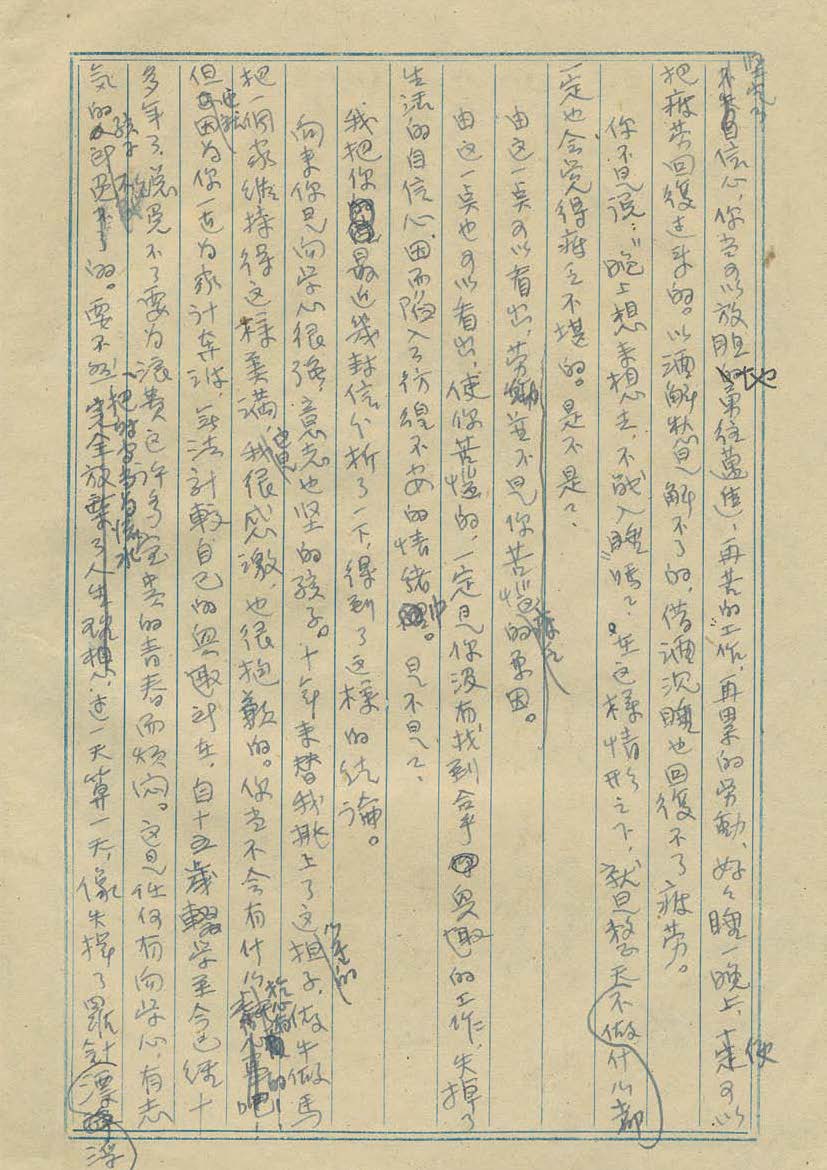 自信心，你尽可以放胆地勇往邁進，再苦的工作，再累的勞動，好々睡一晚上，便可以
把疲劳回復过来的。以酒解愁是解不了的，借酒沉睡也回復不了疲劳。
你不是说："晚上想来想去，不能入睡"嗎？在这樣情形之下，就是整天不做什么都
一定也会觉得疲乏不堪的。是不是？
由这一点可以看出，劳動並不是你苦惱的原因。
由这一点也可以看出，使你苦惱的，一定是你没有找到合乎興趣的工作，失掉了
生活的自信心，因而陷入了彷徨不安的情緒中。是不是？
我把你最近幾封信分析了一下，得到了这樣的结論。
向来你是向学心很强，意志也坚的孩子。十年来替我挑上了这担子，做牛做馬
把一個家維持得这樣美满，我很感激，也很抱歉的。你当不会有什么
但因为你一直为家计奔波，無法計較自己的興趣所在，自十五歲輟学至今已经十
多年了，免不了要为浪費这许多宝贵的青春而烦闷。这是任何有向学心，有志
气的孩子不了的。要不然，完全放棄了人生理想，过一天算一天，像失掉了羅針漂浮